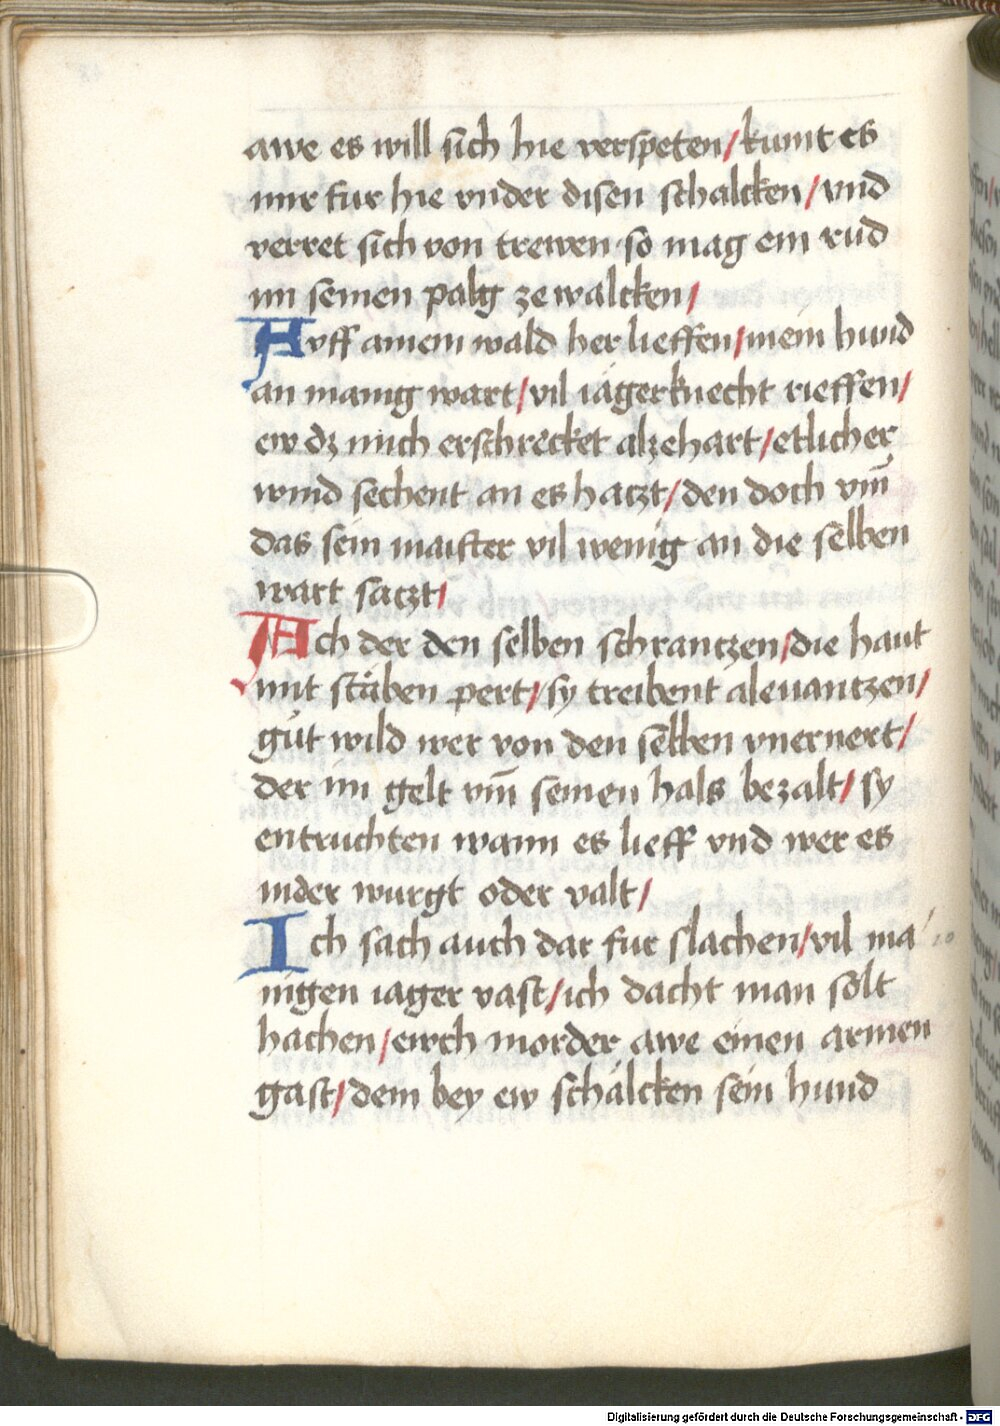 awe es will sich hie verspeten / kumt es
mir fur hie vnder disen schalcken / vnd
verret sich von trewen so mag ein rud
im seinen palg ze walcken /
Avff ainem wald her lieffen / mein hund
an manig wart / vil iäger knecht rieffen /
ew dz mich erschrecket alzehart / etlicher
wind sechent an es hatzt / den doch vm̄
das sein maister vil wenig an die selben
wart satzt /
Ach der den selben schrantzen / die haut
mit stäben pert / sy treibent aleuantzen /
gut wild wer von den selben vnernert /
der im gelt vm̄ seinen hals bezalt / sy
entruchten wann es lieff vnd wer es
inder wurgt oder valt /
Ich sach auch dar fur slachen / vil ma
nigen iager vast / ich dacht man solt
hachen / ewch morder awe einen armen
gast / dem bey ew schälcken sein hund
Digitalisierung gefördert durch die Deutsche Forschungsgemeinschaft - DFG